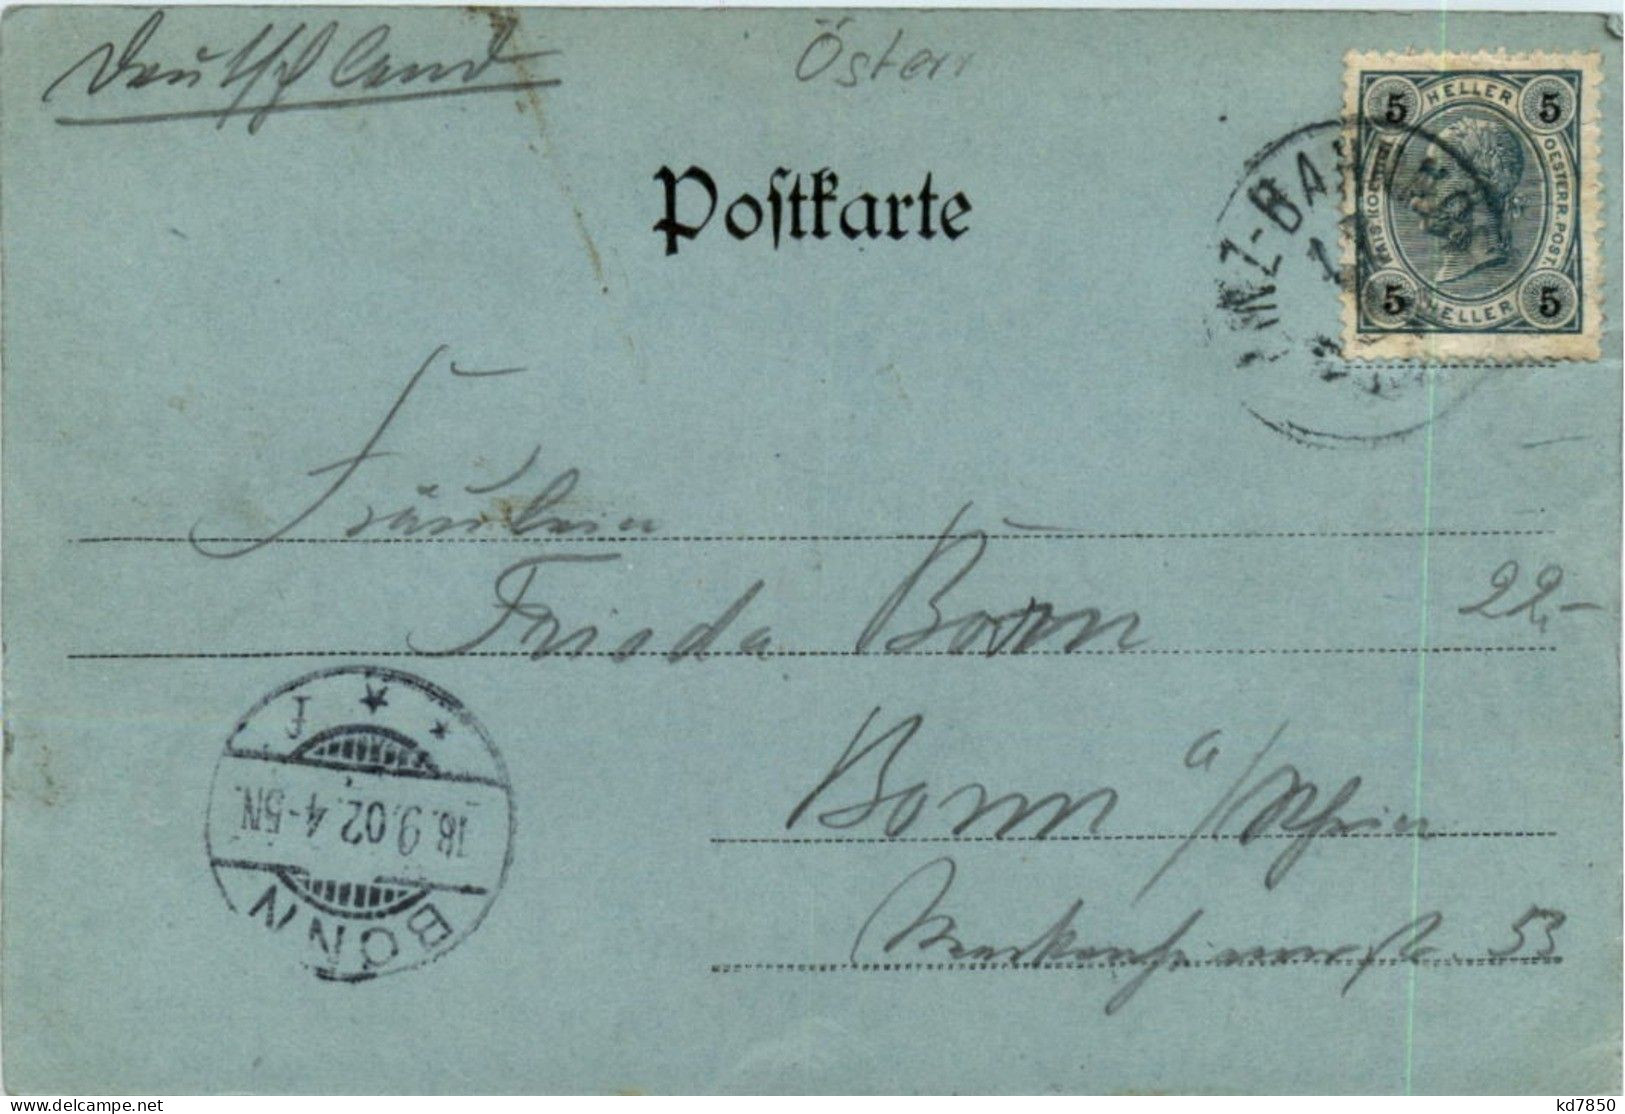 Deutschland
Österr
Postkarte
5 HELLER 5
OESTERR. POST.
5 HELLER 5
LINZ-BAHNHOF
Fräulein
Frieda Bonn
22,-
Bonn a/Rhein
53
F
18.9.02.4-5N.
BONN
delcampe.net
kd7850